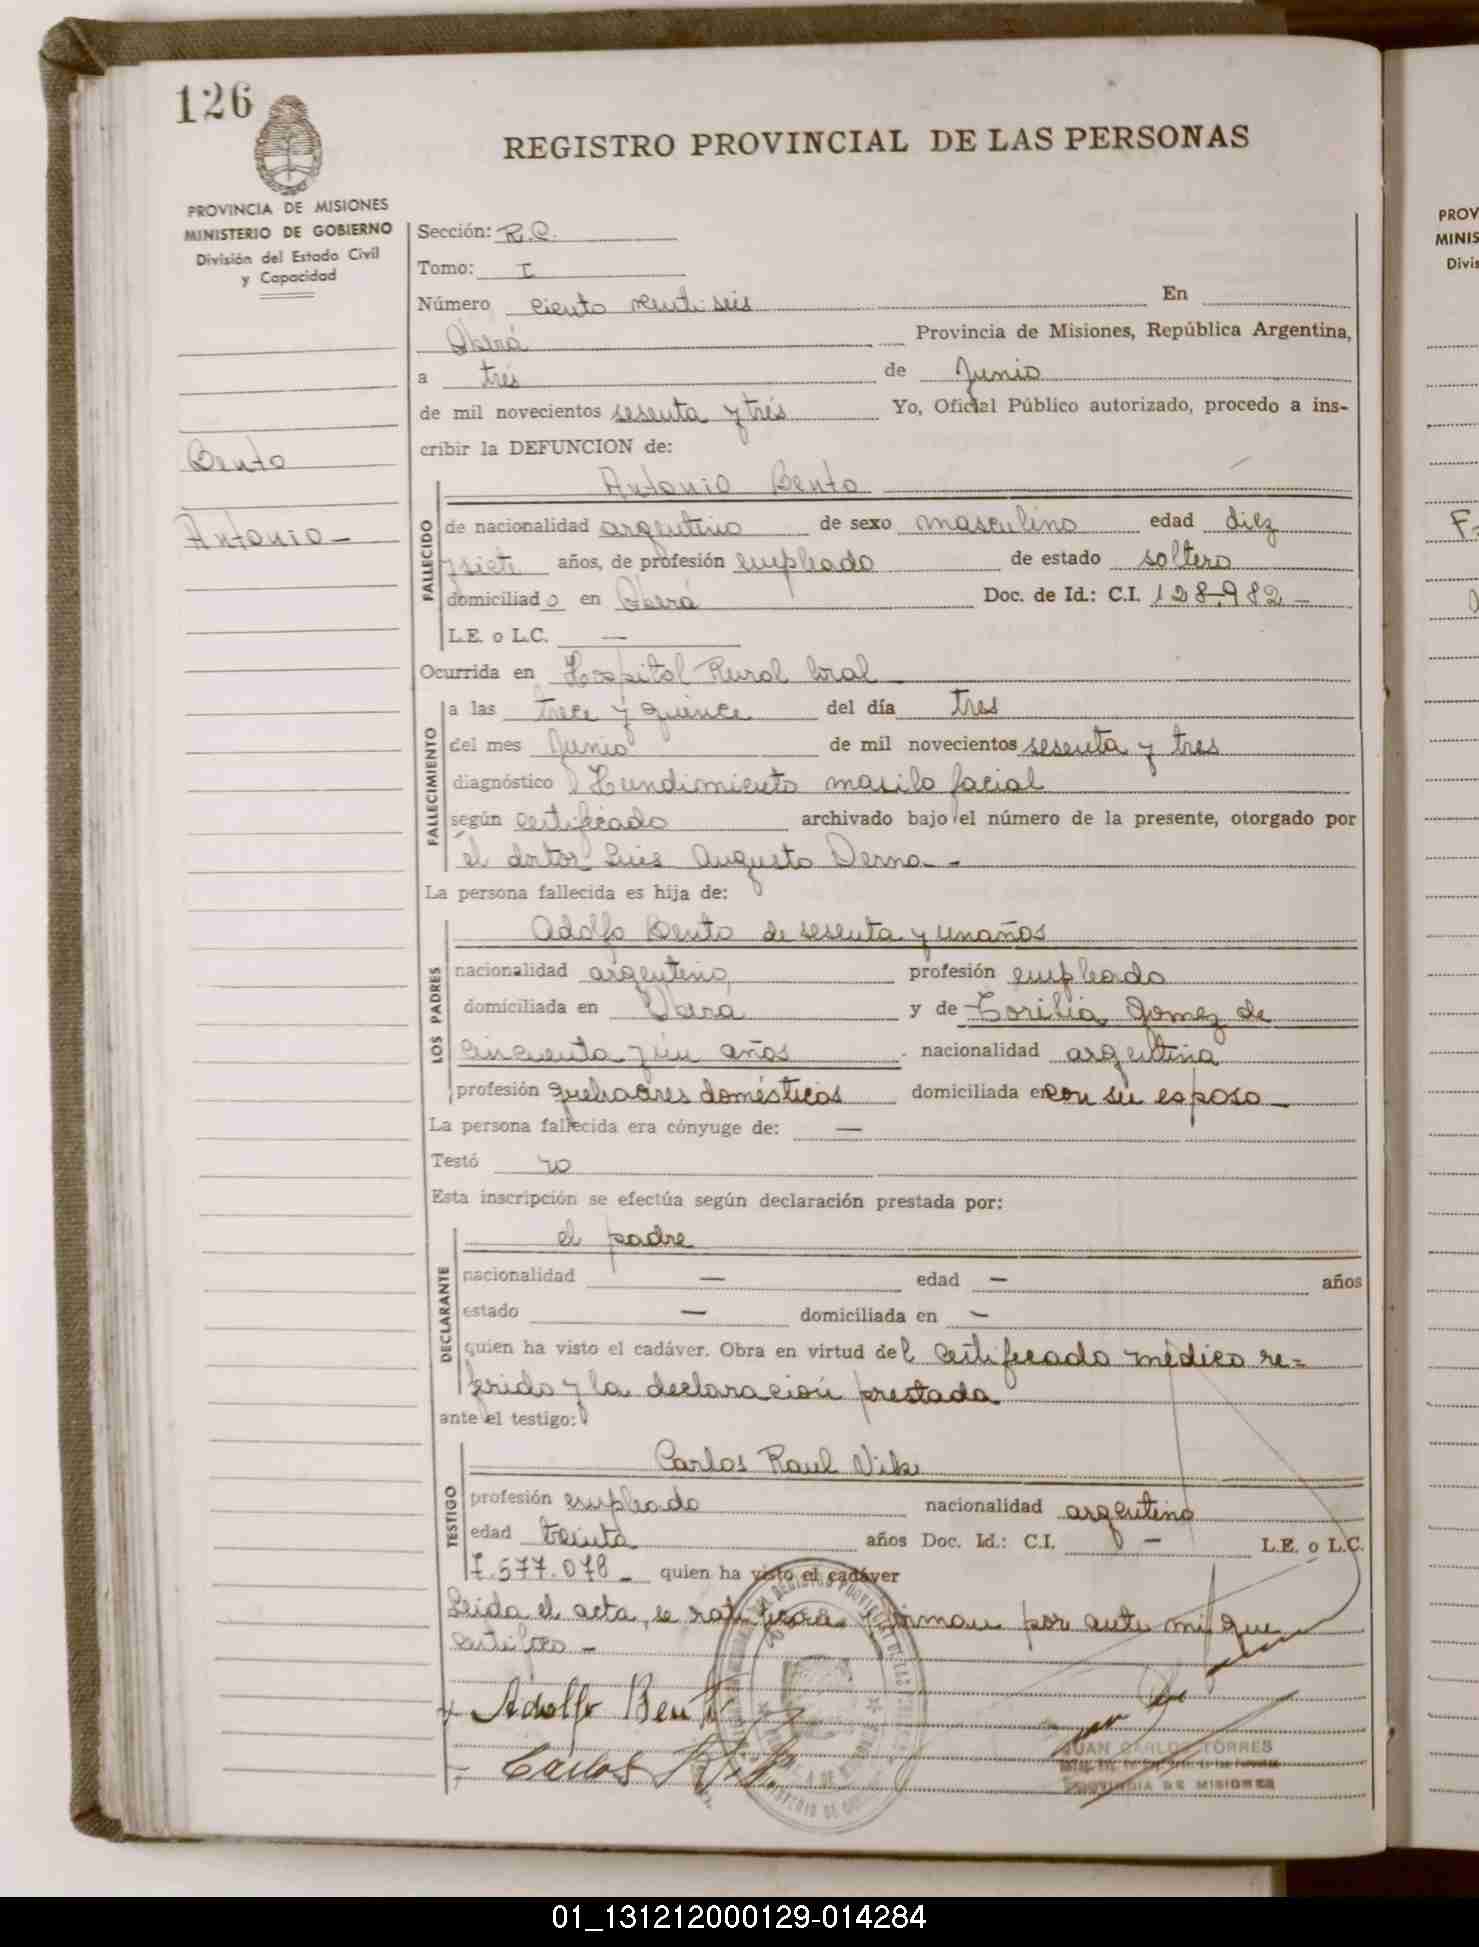 126
REGISTRO PROVINCIAL DE LAS PERSONAS
PROVINCIA DE MISIONES
MINISTERIO DE GOBIERNO
División del Estado Civil
y Capacidad
Bento
Antonio -
Sección: R.C.
Tomo: I
Número ciento veinti seis En
Oberá Provincia de Misiones, República Argentina,
a tres de Junio
de mil novecientos sesenta y tres Yo, Oficial Público autorizado, procedo a ins-
cribir la DEFUNCION de:
Antonio Bento
FALLECIDO
de nacionalidad argentino de sexo masculino edad diez
y siete años, de profesión empleado de estado soltero
domiciliado en Oberá Doc. de Id.: C.I. 128.982 -
L.E. o L.C. —
Ocurrida en Hospital Rural local
FALLECIMIENTO
a las trece y quince del día tres
del mes Junio de mil novecientos sesenta y tres
diagnóstico Hundimiento maxilo facial
según certificado archivado bajo el número de la presente, otorgado por
el doctor Luis Augusto Derna -
La persona fallecida es hija de:
LOS PADRES
Adolfo Bento de sesenta y un años
nacionalidad argentino profesión empleado
domiciliada en Oberá y de Corilia Gomez de
cincuenta y un años nacionalidad argentina
profesión quehaceres domésticos domiciliada en con su esposo -
La persona fallecida era cónyuge de: —
Testó no
Esta inscripción se efectúa según declaración prestada por:
DECLARANTE
el padre
nacionalidad — edad — años
estado — domiciliada en —
quien ha visto el cadáver. Obra en virtud del certificado médico re=
ferido y la declaración prestada
ante el testigo:
TESTIGO
Carlos Raul Vik
profesión empleado nacionalidad argentino
edad treinta años Doc. Id.: C.I. — L.E. o L.C.
7.577.078 - quien ha visto el cadáver
Leida el acta, se ratifican y firman por ante mi que
certifico -
Adolfo Bento
Carlos
JUAN CARLOS TORRES
PROVINCIA DE MISIONES
PROV
MINIS
Divis
01_131212000129-014284